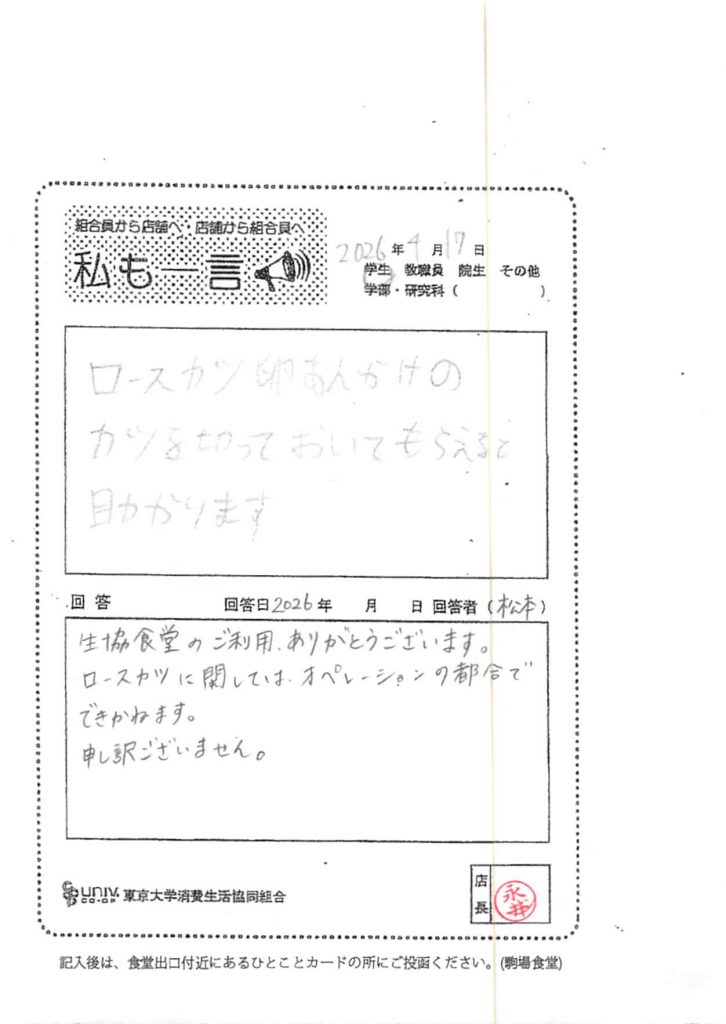 組合員から店舗へ 店舗から組合員へ
私も一言
2026年4月17日
学生 教職員 院生 その他
学部・研究科( )
ロースカツ卵あんかけの
カツを切っておいてもらえると
助かります
回答 回答日2026年 月 日 回答者(松本)
生協食堂のご利用、ありがとうございます。
ロースカツに関しては、オペレーションの都合で
できかねます。
申し訳ございません。
UNIV. CO-OP 東京大学消費生活協同組合
店長 永井
記入後は、食堂出口付近にあるひとことカードの所にご投函ください。(駒場食堂)